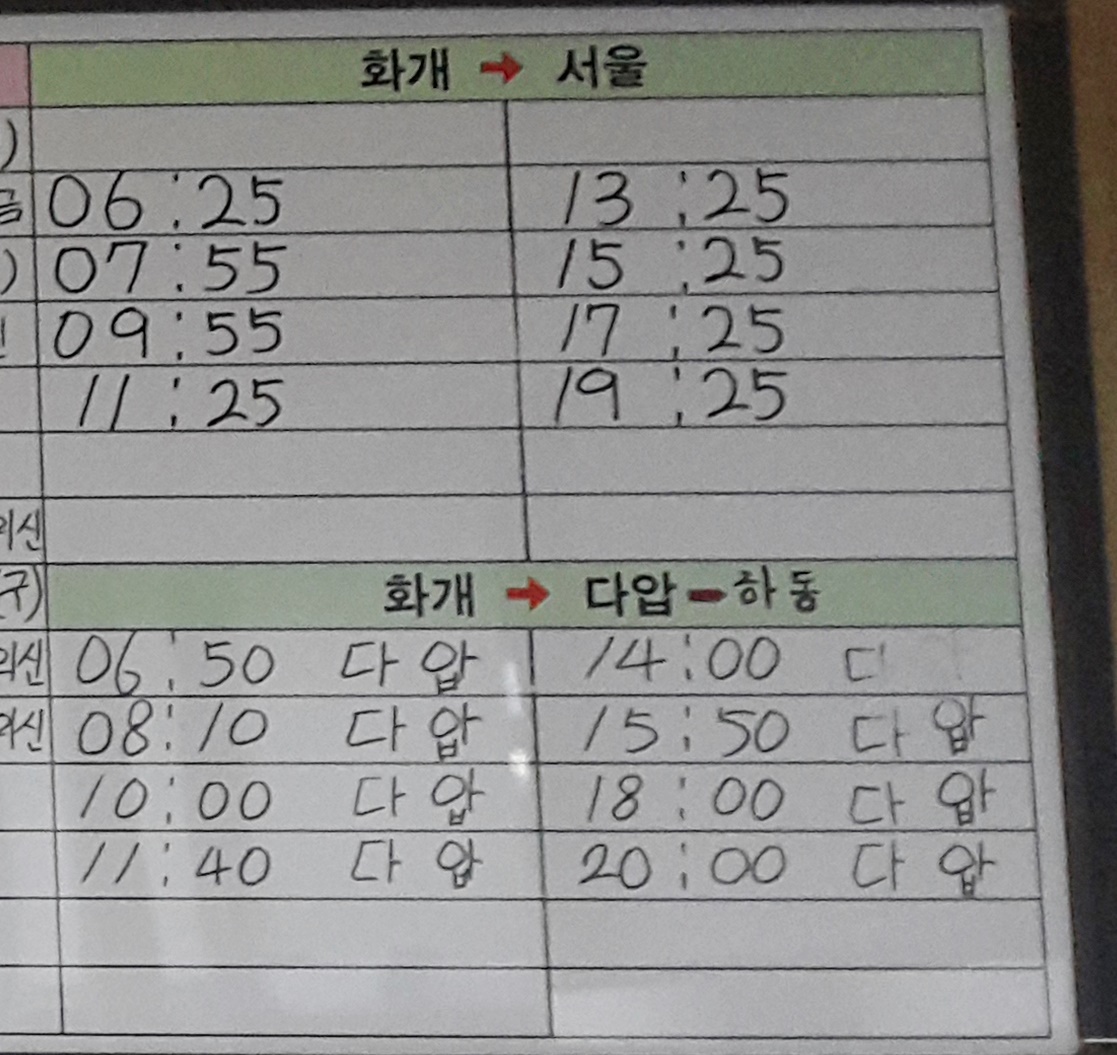 화개 → 서울
)
금 06:25 13:25
) 07:55 15:25
09:55 17:25
11:25 19:25
외신
구) 화개 → 다압-하동
외신 06:50 다압 14:00 다
외신 08:10 다압 15:50 다압
10:00 다압 18:00 다압
11:40 다압 20:00 다압